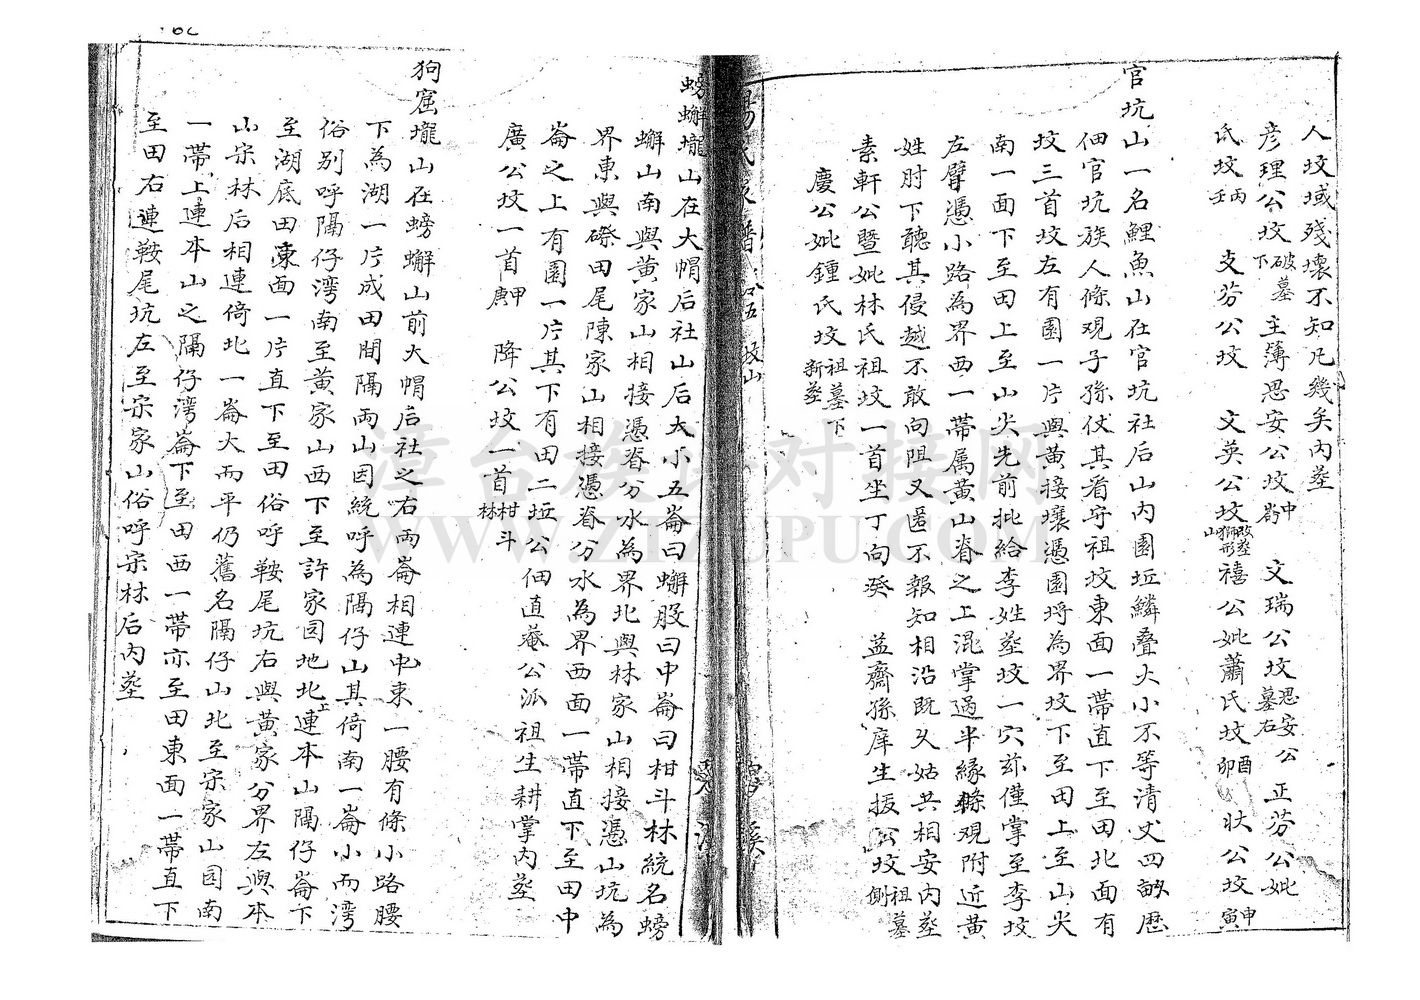 人坟域殘壞不知凡幾矣内塟
彦理公坟破墓下 主薄思安公坟中崙 文瑞公坟思安公墓右 正芬公妣
氏坟丙壬 支芬公坟 文英公坟改塟獅形山 禧公妣蕭氏坟酉卯 状公坟申寅
官坑山一名鯉魚山在官坑社后山内園坵鱗叠大小不等清丈四畝歷
佃官坑族人條观子孫仗其看守祖坟東面一帶直下至田北面有
坟三首坟左有園一片與黄接壤憑園埒為界坟下至田上至山尖
南一面下至田上至山尖先前批給李姓塟坟一穴玆僅掌至李坟
左臂憑小路為界西一帶属黄山脊之上混掌過半緣條观附近黄
姓肘下聽其侵越不敢向阻又匿不報知相沿既久姑共相安内塟
素軒公暨妣林氏祖坟一首坐丁向癸 益齋孫庠生援公坟祖墓側
慶公妣鍾氏坟祖墓下新塟
楊氏家譜 坟山
螃蠏壠山在大帽后社山后大小五崙曰蠏股曰中崙曰柑斗林統名螃
蠏山南與黄家山相接憑脊分水為界北與林家山相接憑山坑為
界東與磜田尾陳家山相接憑脊分水為界西面一帶直下至田中
崙之上有園一片其下有田二坵公佃直菴公派祖生耕掌内塟
廣公坟一首庚甲 降公坟一首柑斗林
狗窟壠山在螃蠏山前大帽后社之右两崙相連中束一腰有條小路腰
下為湖一片成田間隔两山因統呼為隔仔山其倚南一崙小而湾
俗别呼隔仔湾南至黄家山西下至許家园地北上連本山隔仔崙下
至湖底田東面一片直下至田俗呼鞍尾坑右與黄家分界左與本
山宗林后相連倚北一崙大而平仍舊名隔仔山北至宗家山园南
一帶上連本山之隔仔湾崙下至田西一帶亦至田東面一帶直下
至田右連鞍尾坑左至宗家山俗呼宗林后内塟
漳台族谱对接网
WWW.ZTZUPU.COM